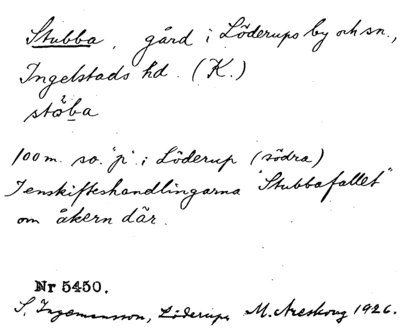 Stubba, gård i Löderups by och sn.,
Ingelstads hd. (K.)
stöba
100 m. so. "p" i Löderup (södra)
I enskifteshandlingarna "Stubbafallet"
om åkern där.
Nr 5450.
S. Ingemansson, Löderup. M. Areskoug 1926.